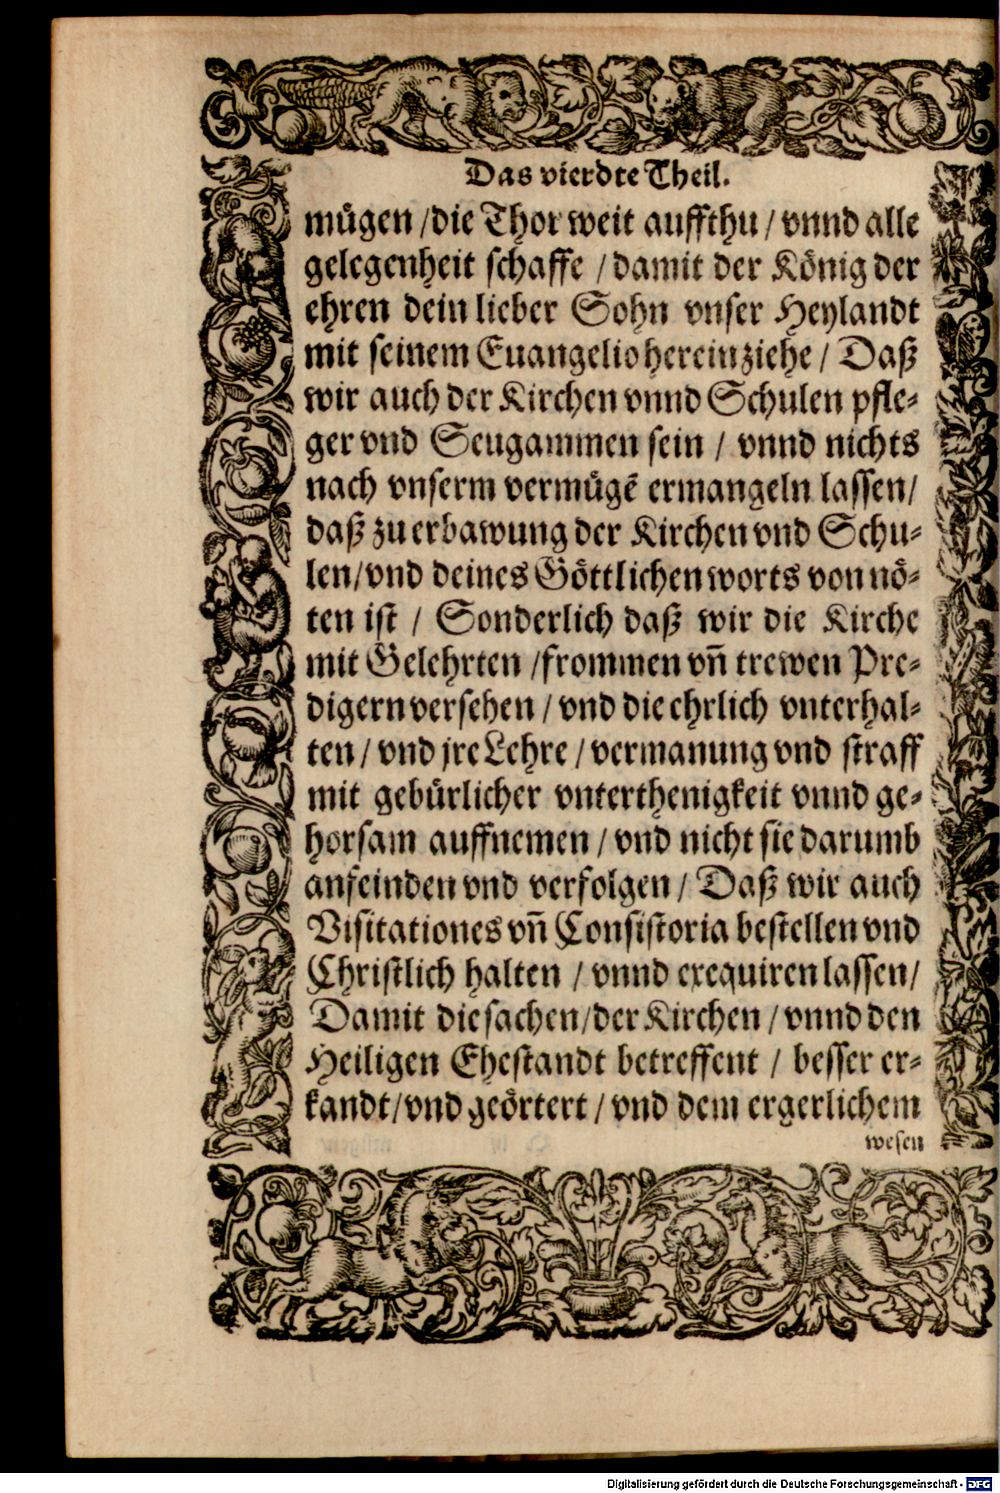 Das vierdte Theil.
mügen /die Thor weit auffthu / vnnd alle
gelegenheit schaffe / damit der König der
ehren dein lieber Sohn vnser Heylandt
mit seinem Euangelio hereinziehe / Daß
wir auch der Kirchen vnnd Schulen pfle-
ger vnd Seugammen sein / vnnd nichts
nach vnserm vermügẽ ermangeln lassen/
daß zu erbawung der Kirchen vnd Schu-
len/vnd deines Göttlichen worts von nö-
ten ist / Sonderlich daß wir die Kirche
mit Gelehrten /frommen vñ trewen Pre-
digern versehen / vnd die ehrlich vnterhal-
ten / vnd jre Lehre / vermanung vnd straff
mit gebürlicher vnterthenigkeit vnnd ge-
horsam auffnemen / vnd nicht sie darumb
anfeinden vnd verfolgen / Daß wir auch
Visitationes vñ Consistoria bestellen vnd
Christlich halten / vnnd exequiren lassen/
Damit die sachen/der Kirchen / vnnd den
Heiligen Ehestandt betreffent / besser er-
kandt/vnd geörtert / vnd dem ergerlichem
wesen
Digitalisierung gefördert durch die Deutsche Forschungsgemeinschaft - DFG